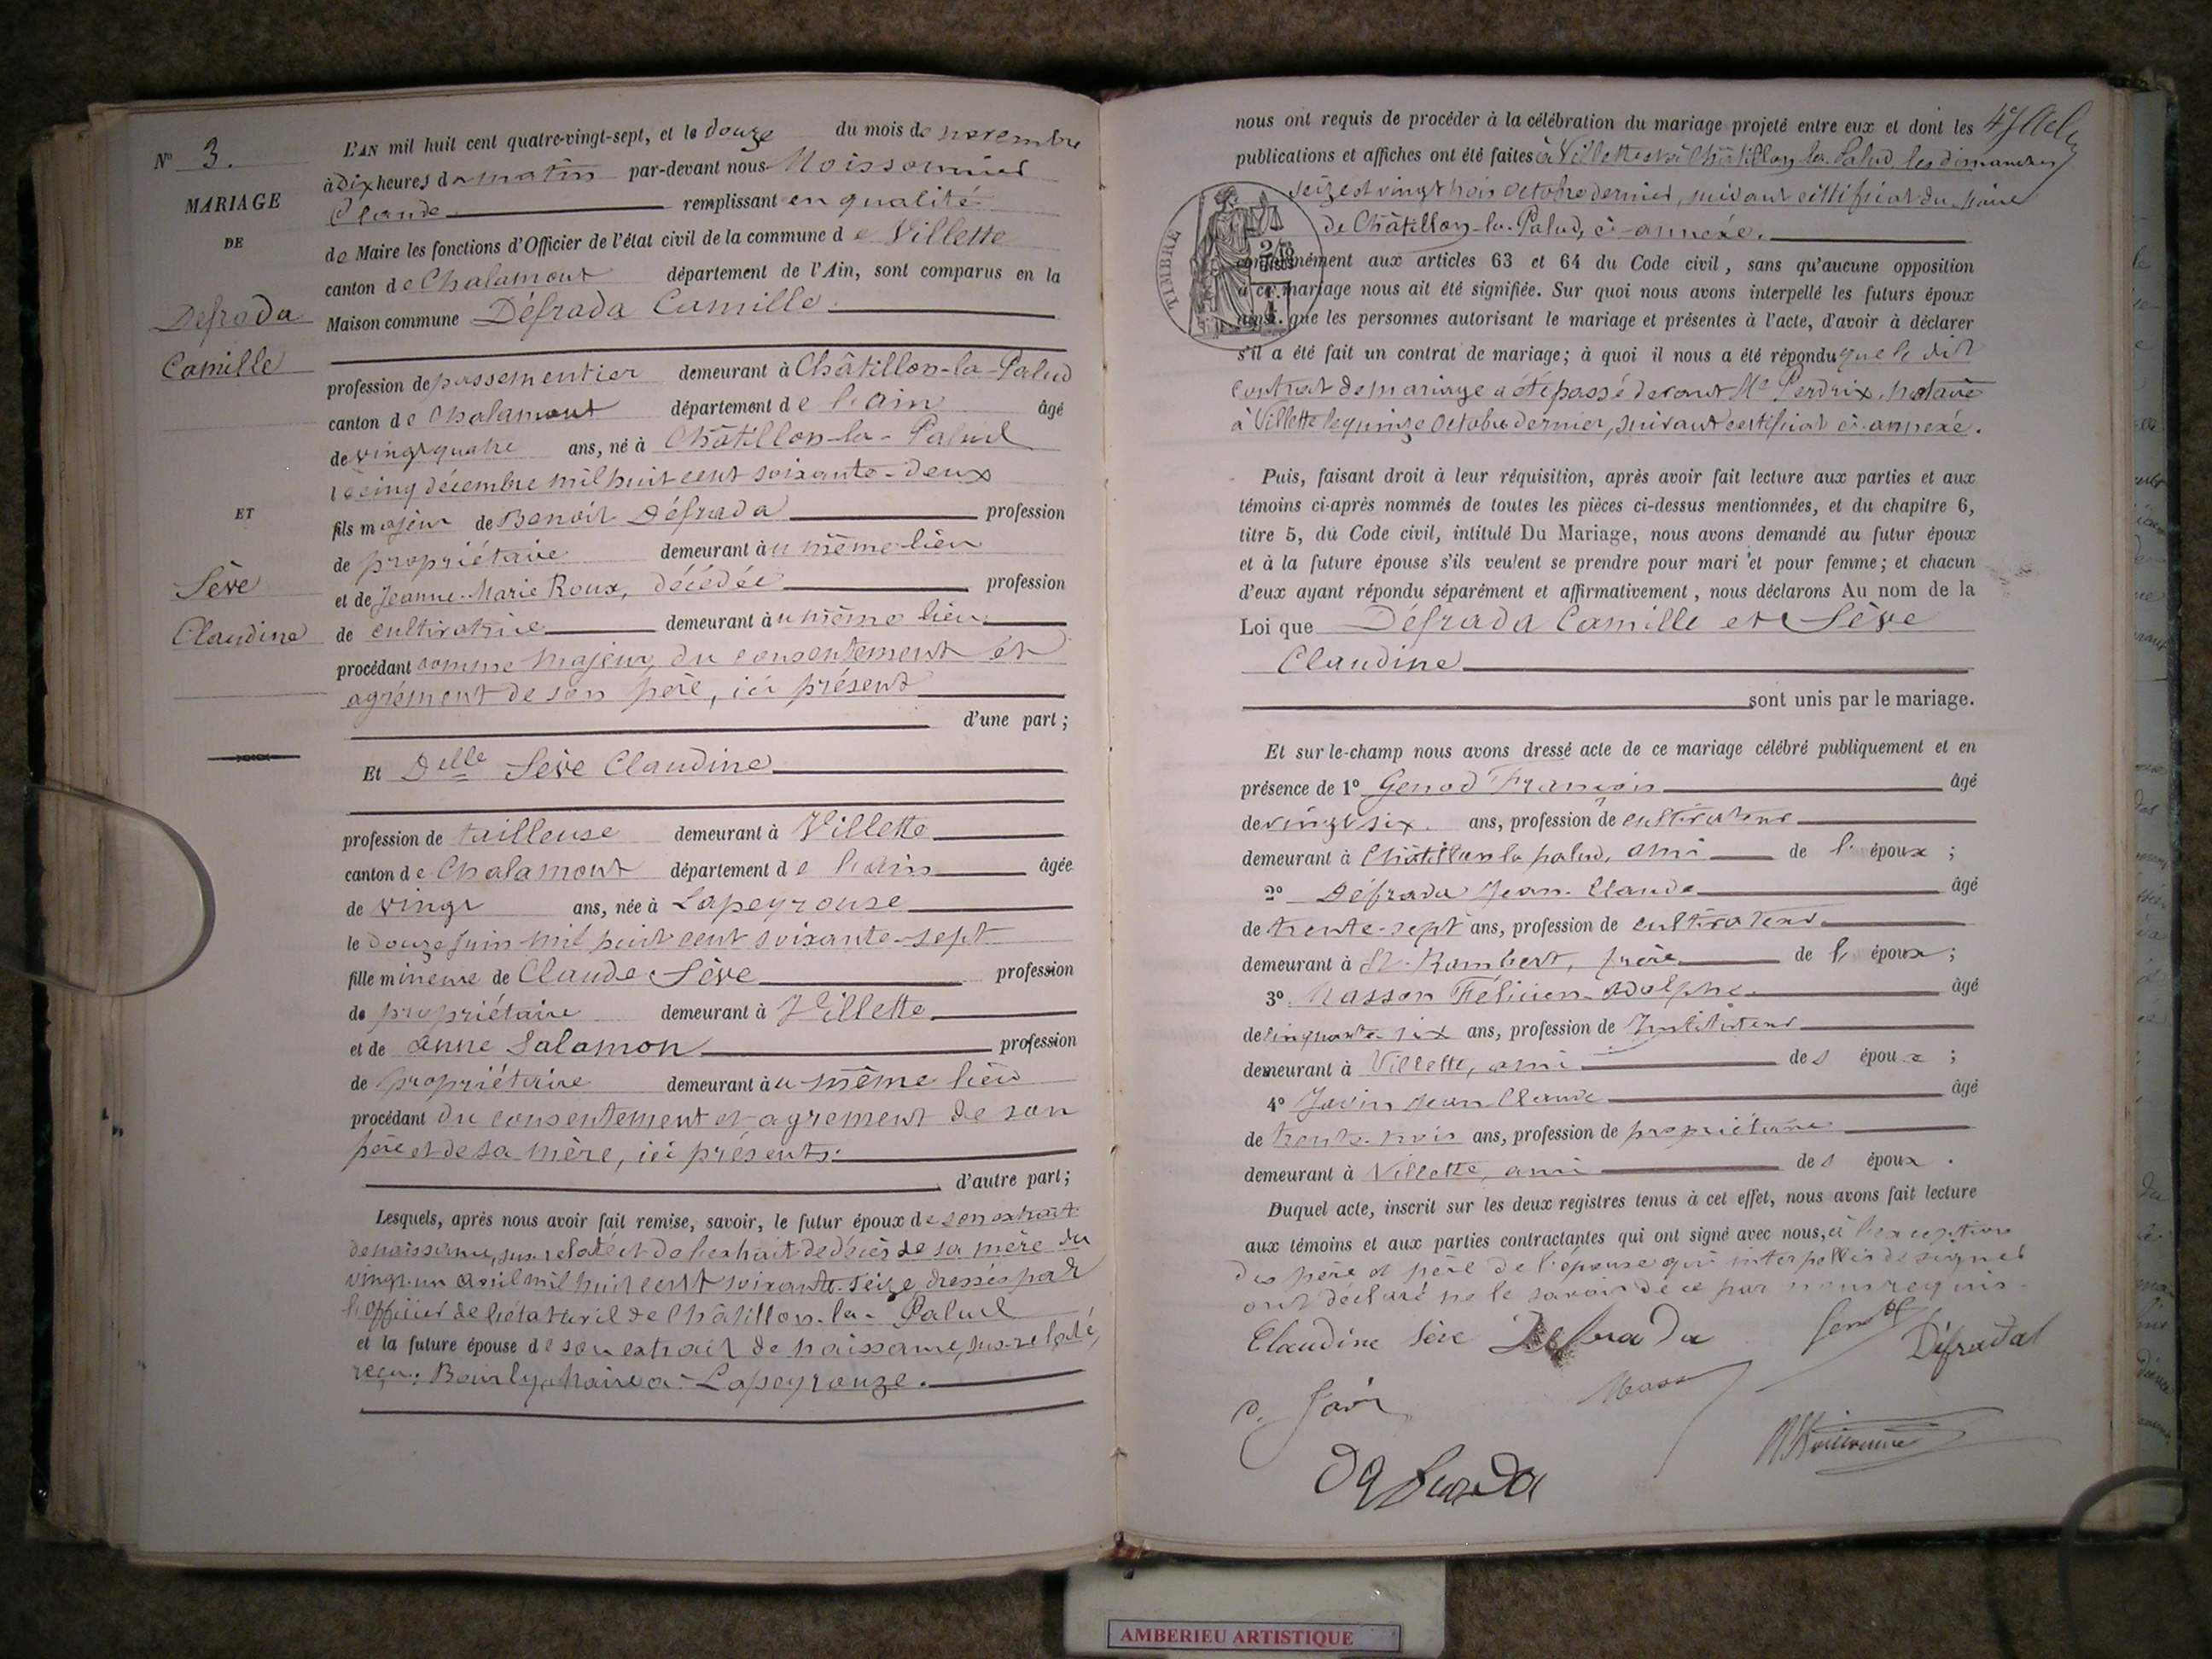 N° 3.
MARIAGE
DE
Defrada
Camille
ET
Sève
Claudine
L'AN mil huit cent quatre-vingt-sept, et le douze du mois de novembre
à dix heures du matin par-devant nous Moissonnier
Claude remplissant en qualité
de Maire les fonctions d'Officier de l'état civil de la commune de Villette
canton de Chalamont département de l'Ain, sont comparus en la
Maison commune Défrada Camille
profession de passementier demeurant à Châtillon-la-Palud
canton de Chalamont département de l'ain âgé
de vingt quatre ans, né à Châtillon-la-Palud
le cinq décembre mil huit cent soixante-deux
fils majeur de Benoit Défrada profession
de propriétaire demeurant à u même lieu
et de Jeanne-Marie Roux, décédée profession
de cultivatrice demeurant à u même lieu
procédant comme majeur, du consentement et
agrément de son père, ici présent
d'une part ;
Et Delle Sève Claudine
profession de tailleuse demeurant à Villette
canton de Chalamont département de l'ain âgée
de vingt ans, née à Lapeyrouse
le douze juin mil huit cent soixante-sept
fille mineure de Claude Sève profession
de propriétaire demeurant à Villette
et de Anne Salamon profession
de propriétaire demeurant à u même lieu
procédant du consentement et agrément de son
père et de sa mère, ici présents.
d'autre part ;
Lesquels, après nous avoir fait remise, savoir, le futur époux de son extrait
de naissance, sus relaté et de l'extrait de décès de sa mère du
vingt-un avril mil huit cent soixante-seize, dressés par
l'officier de l'état civil de Châtillon-la-Palud
et la future épouse de son extrait de naissance, sus-relaté,
reçu, maire à Lapeyrouze.
nous ont requis de procéder à la célébration du mariage projeté entre eux et dont les
publications et affiches ont été faites à Villette et à Châtillon-la-Palud les dimanches
seize et vingt trois Octobre dernier, suivant certificat du maire
de Châtillon-la-Palud, ci-annexé.
TIMBRE
conformément aux articles 63 et 64 du Code civil, sans qu'aucune opposition
à ce mariage nous ait été signifiée. Sur quoi nous avons interpellé les futurs époux
ainsi que les personnes autorisant le mariage et présentes à l'acte, d'avoir à déclarer
s'il a été fait un contrat de mariage ; à quoi il nous a été répondu que le dit
contrat de mariage a été passé devant Me Perdrix, notaire
à Villette le quinze Octobre dernier, suivant certificat ci-annexé.
Puis, faisant droit à leur réquisition, après avoir fait lecture aux parties et aux
témoins ci-après nommés de toutes les pièces ci-dessus mentionnées, et du chapitre 6,
titre 5, du Code civil, intitulé Du Mariage, nous avons demandé au futur époux
et à la future épouse s'ils veulent se prendre pour mari et pour femme ; et chacun
d'eux ayant répondu séparément et affirmativement, nous déclarons Au nom de la
Loi que Défrada Camille et Sève
Claudine
sont unis par le mariage.
Et sur-le-champ nous avons dressé acte de ce mariage célébré publiquement et en
présence de 1° Genod François âgé
de vingt six ans, profession de cultivateur
demeurant à Châtillon la palud, ami de l'époux ;
2° Défrada Jean-Claude âgé
de trente-sept ans, profession de cultivateur
demeurant à St-Rambert, frère de l'époux ;
3° Masson Félicien-Adolphe âgé
de cinquante six ans, profession de Instituteur
demeurant à Villette, ami des époux ;
4° Javin Jean Claude âgé
de trente-trois ans, profession de propriétaire
demeurant à Villette, ami des époux.
Duquel acte, inscrit sur les deux registres tenus à cet effet, nous avons fait lecture
aux témoins et aux parties contractantes qui ont signé avec nous, à l'exception
des père et père de l'épouse qui interpellés de signer
ont déclaré ne le savoir de ce par nous requis.
Claudine Sève Défrada Défrada
Défrada
AMBERIEU ARTISTIQUE